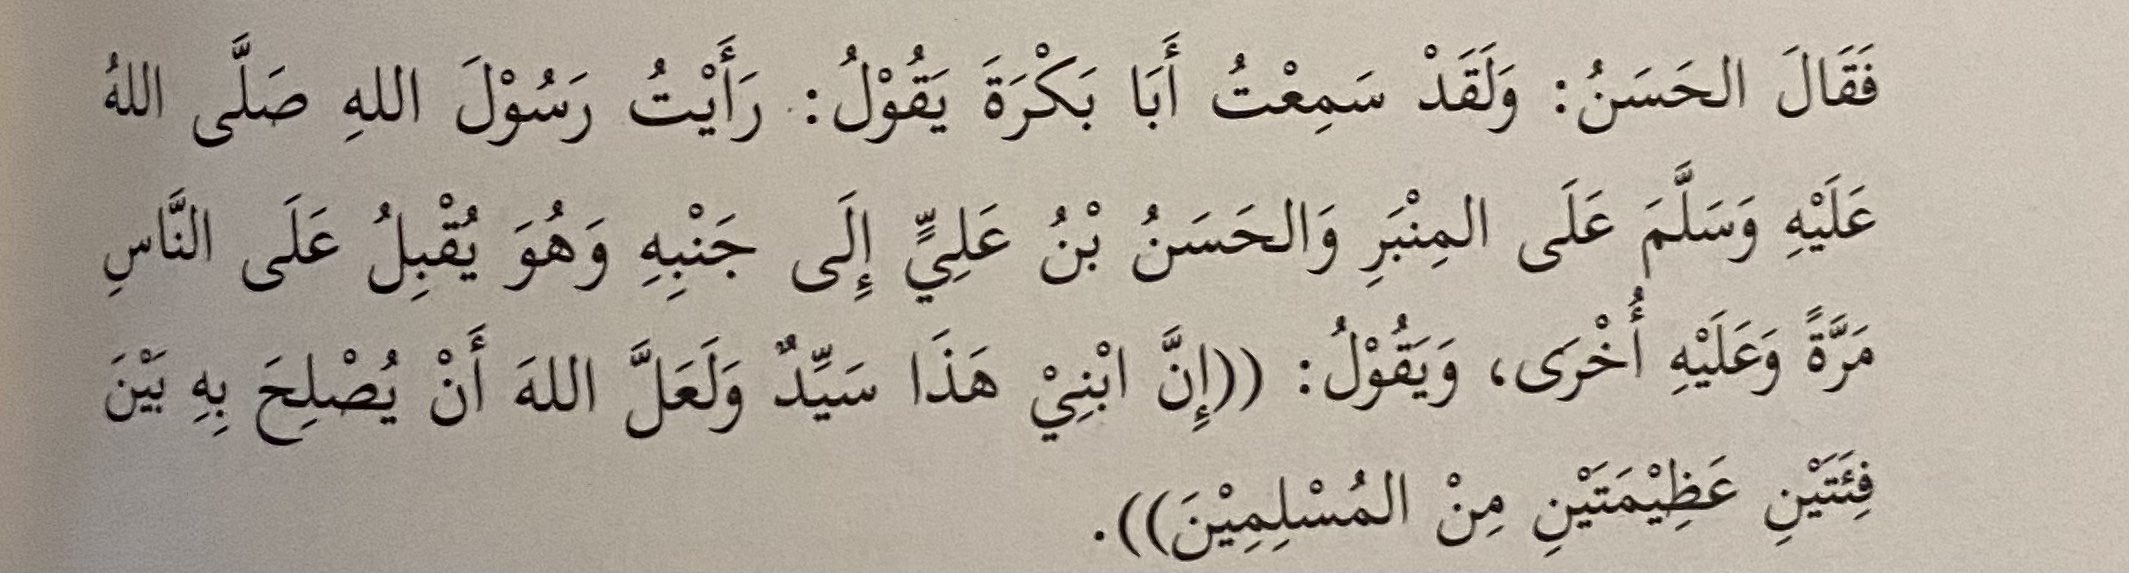 فَقَالَ الحَسَنُ: وَلَقَدْ سَمِعْتُ أَبَا بَكْرَةَ يَقُوْلُ: رَأَيْتُ رَسُوْلَ اللهِ صَلَّى اللهُ
عَلَيْهِ وَسَلَّمَ عَلَى المِنْبَرِ وَالحَسَنُ بْنُ عَلِيٍّ إِلَى جَنْبِهِ وَهُوَ يُقْبِلُ عَلَى النَّاسِ
مَرَّةً وَعَلَيْهِ أُخْرَى، وَيَقُوْلُ: ((إِنَّ ابْنِيْ هَذَا سَيِّدٌ وَلَعَلَّ اللهَ أَنْ يُصْلِحَ بِهِ بَيْنَ
فِئَتَيْنِ عَظِيْمَتَيْنِ مِنْ المُسْلِمِيْنَ)).